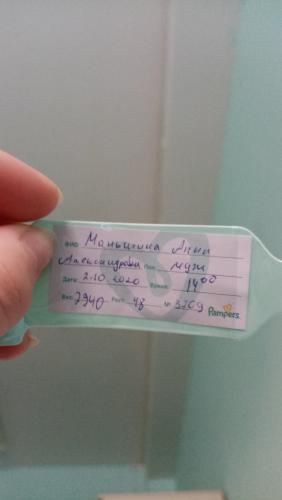 ФИО Маньшина Анна
Александровна Пол муж
Дата 2.10.2020 Время 14⁰⁰
Вес 2940 Рост 48 № 3209 Pampers